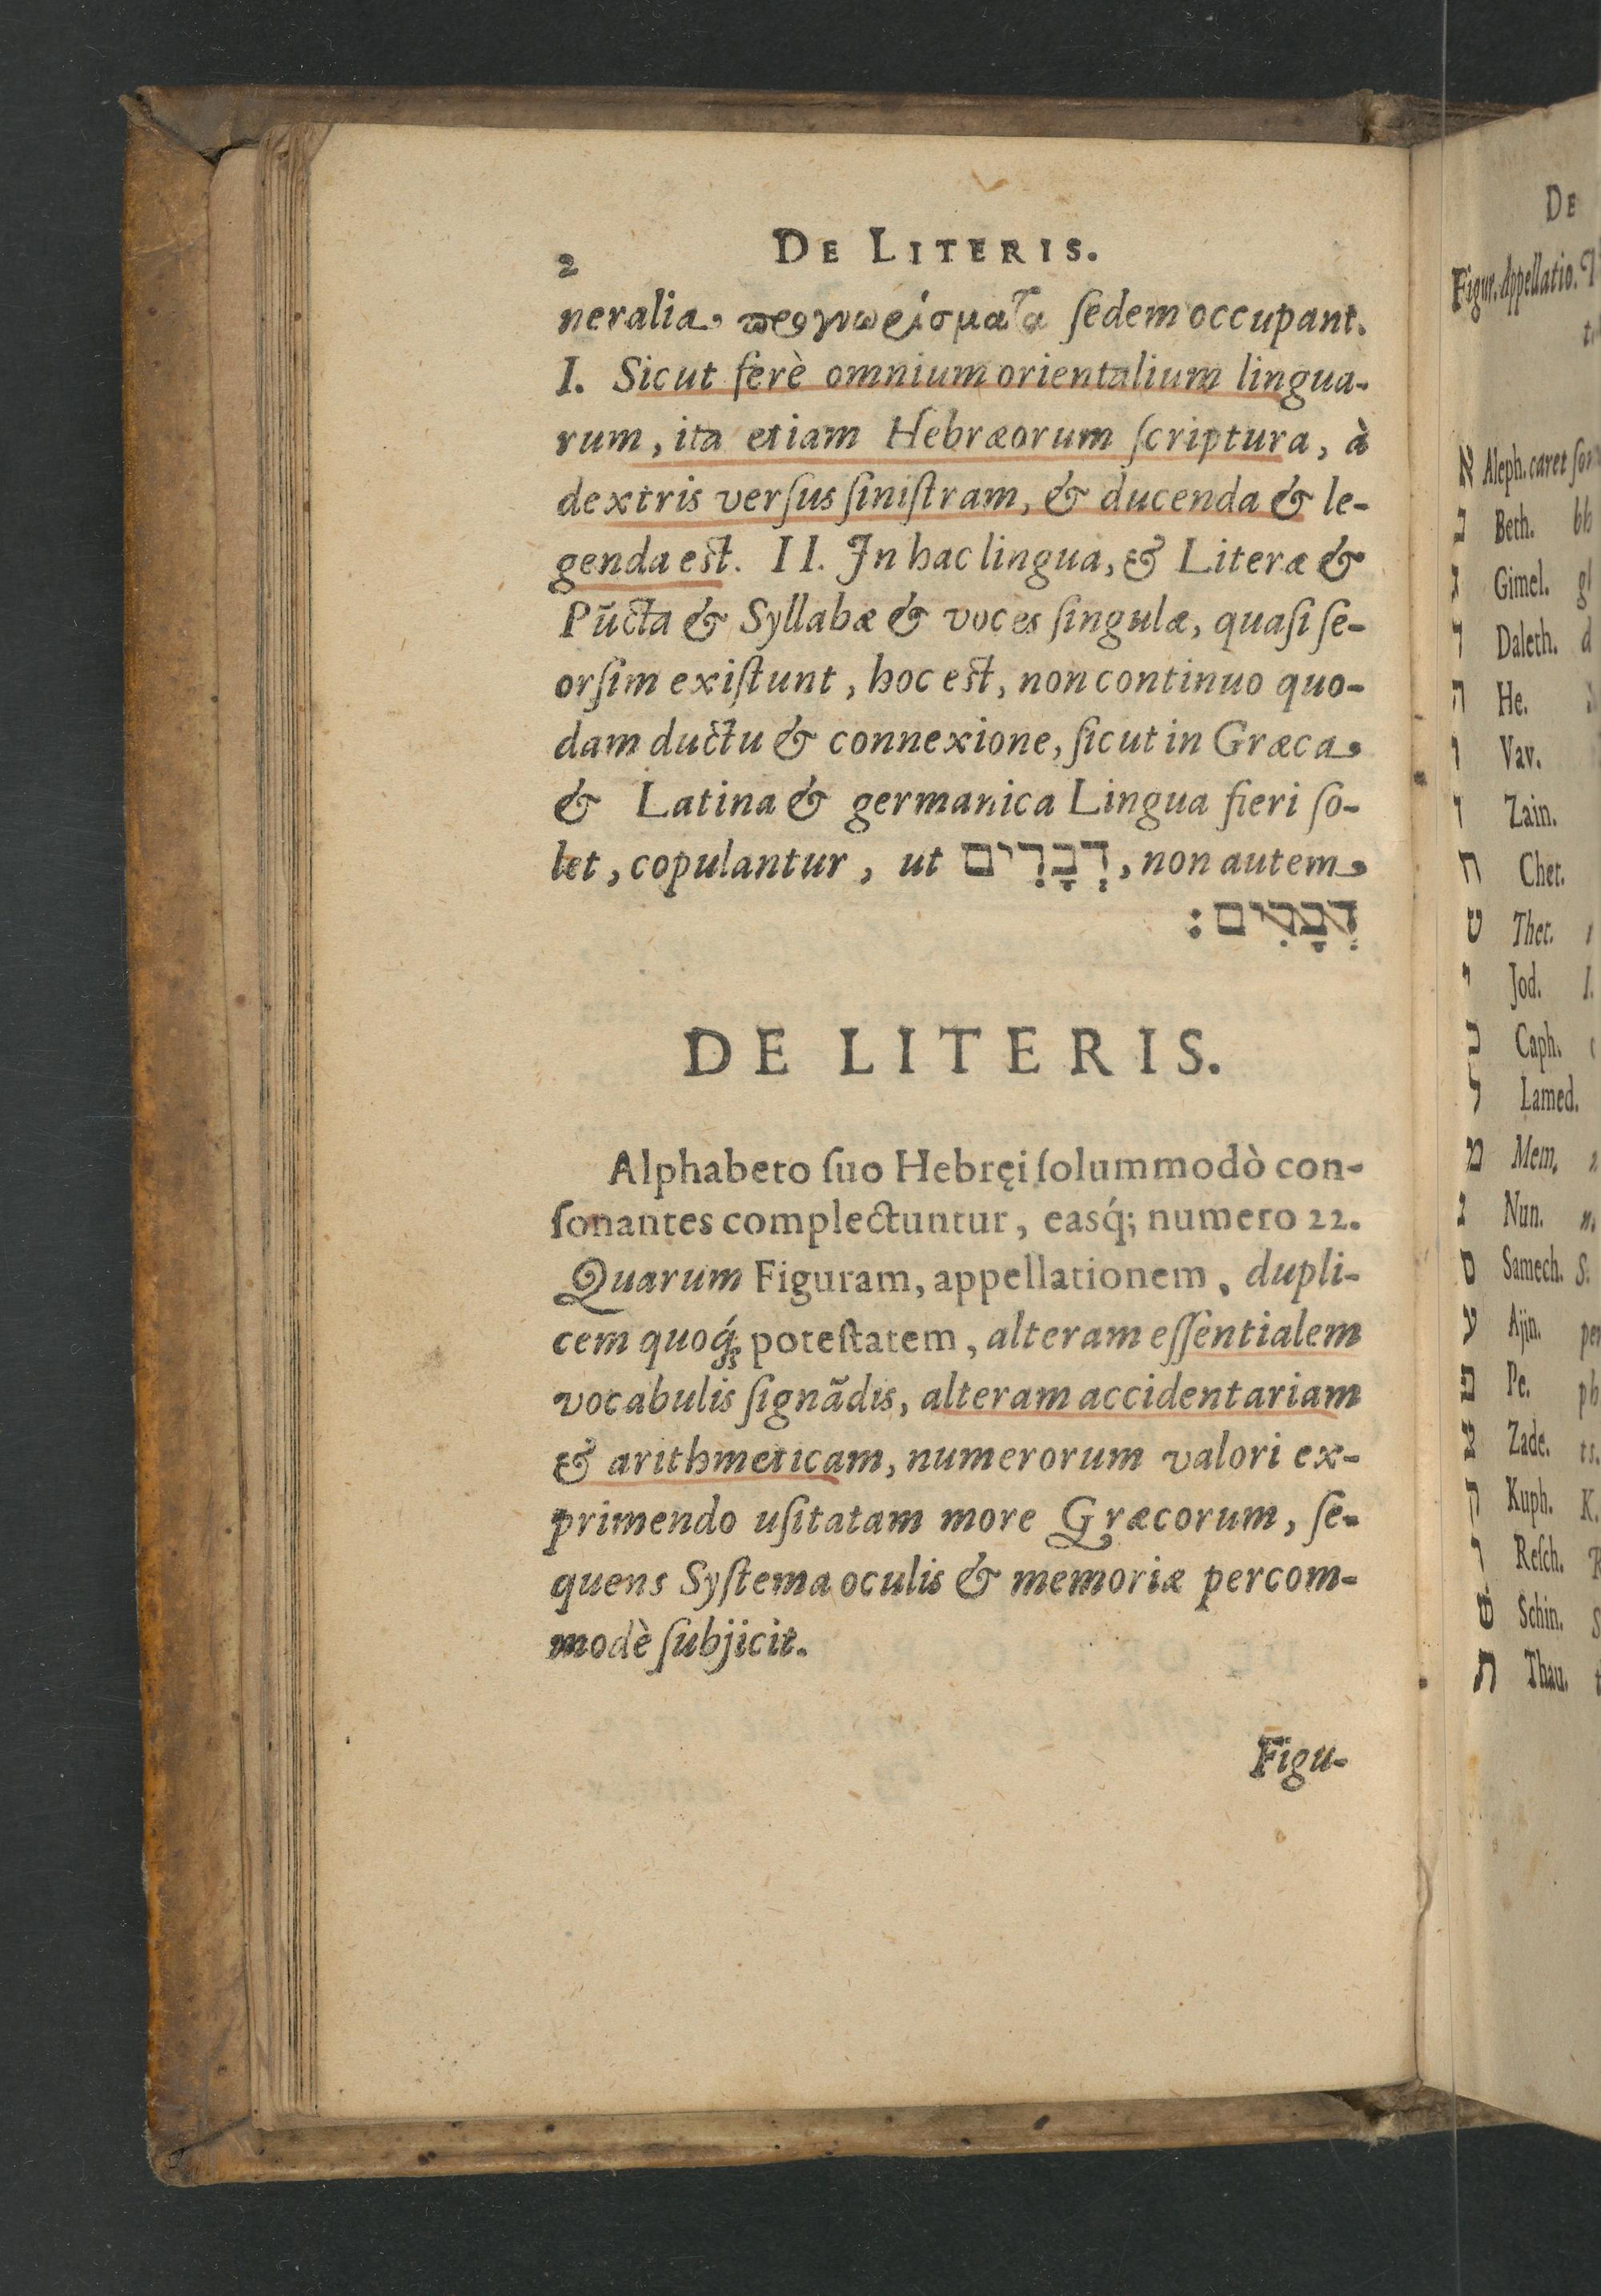 2 DE LITERIS.
neralia προγνωρίσματα ſedem occupant.
I. Sicut ferè omnium orientalium lingua-
rum, ita etiam Hebræorum ſcriptura, à
dextris verſus ſiniſtram, & ducenda & le-
genda eſt. II. In hac lingua, & Literæ &
Pūcta & Syllabæ & voces ſingulæ, quaſi ſe-
orſim exiſtunt, hoc eſt, non continuo quo-
dam ductu & connexione, ſicut in Græca
& Latina & germanica Lingua fieri ſo-
let, copulantur, ut דְבָרִים, non autem
דְבָרִים:
DE LITERIS.
Alphabeto ſuo Hebręi ſolummodò con-
ſonantes complectuntur, easq́; numero 22.
Quarum Figuram, appellationem, dupli-
cem quoq́ꝫ poteſtatem, alteram eſſentialem
vocabulis ſignãdis, alteram accidentariam
& arithmeticam, numerorum valori ex-
primendo uſitatam more Græcorum, ſe-
quens Syſtema oculis & memoriæ percom-
modè ſubjicit.
Figu-
DE
Figur. Appellatio.
א Aleph. caret
ב Beth. bb
ג Gimel.
ד Daleth. d
ה He.
ו Vav.
ז Zain.
ח Chet.
ט Thet.
י Jod. I.
כ Caph.
ל Lamed.
מ Mem.
נ Nun. n.
ס Samech. S.
ע Ajin.
פ Pe. ph
צ Zade. ts.
ק Kuph. K.
ר Reſch.
שׁ Schin.
ת Thau.